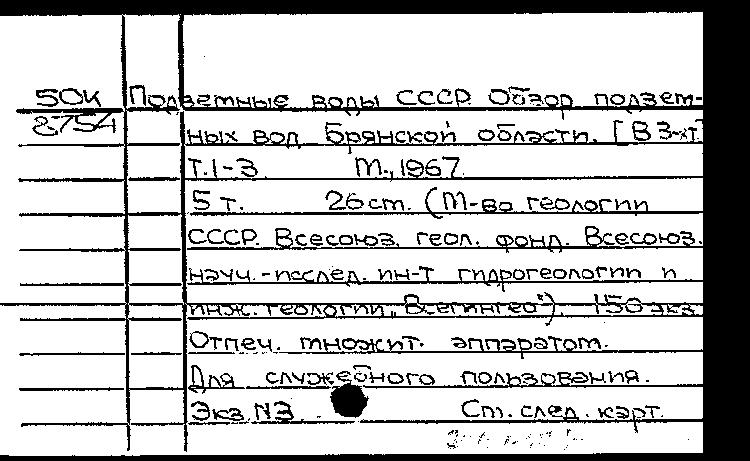 50К Подземные воды СССР. Обзор подзем-
8754 ных вод Брянской области. [В 3-хт.]
Т.1-3. М., 1967.
5 т. 26 см. (М-во геологии
СССР. Всесоюз. геол. фонд. Всесоюз.
науч.-исслед. ин-т гидрогеологии и
инж. геологии „Всегингео"). 150 экз.
Отпеч. множит. аппаратом.
Для служебного пользования.
Экз. №3. См. след. карт.